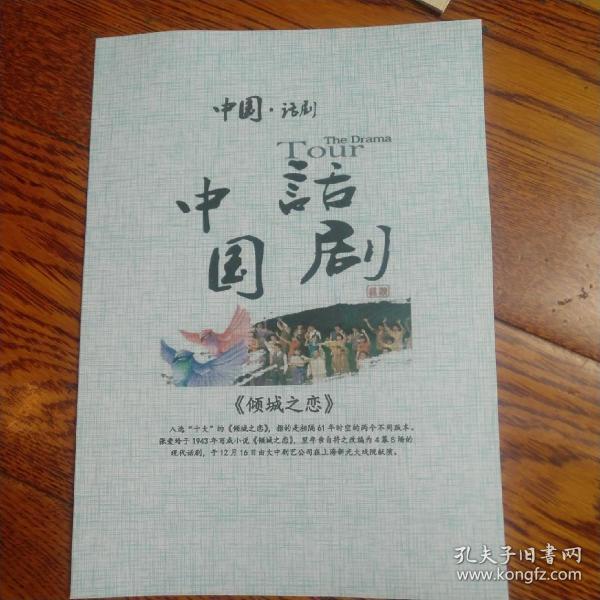 中国·话剧
The Drama
Tour
中国
話剧
《倾城之恋》
入选“十大”的《倾城之恋》，指的是相隔61年时空的两个不同版本。
张爱玲于1943年写成小说《倾城之恋》，翌年亲自将之改编为4幕8场的
现代话剧，于12月16日由大中剧艺公司在上海新光大戏院献演。
孔夫子旧书网
www.kongfz.com